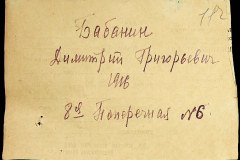 Бабанин
Димитрий Григорьевич
1916
8я Поперечная №6